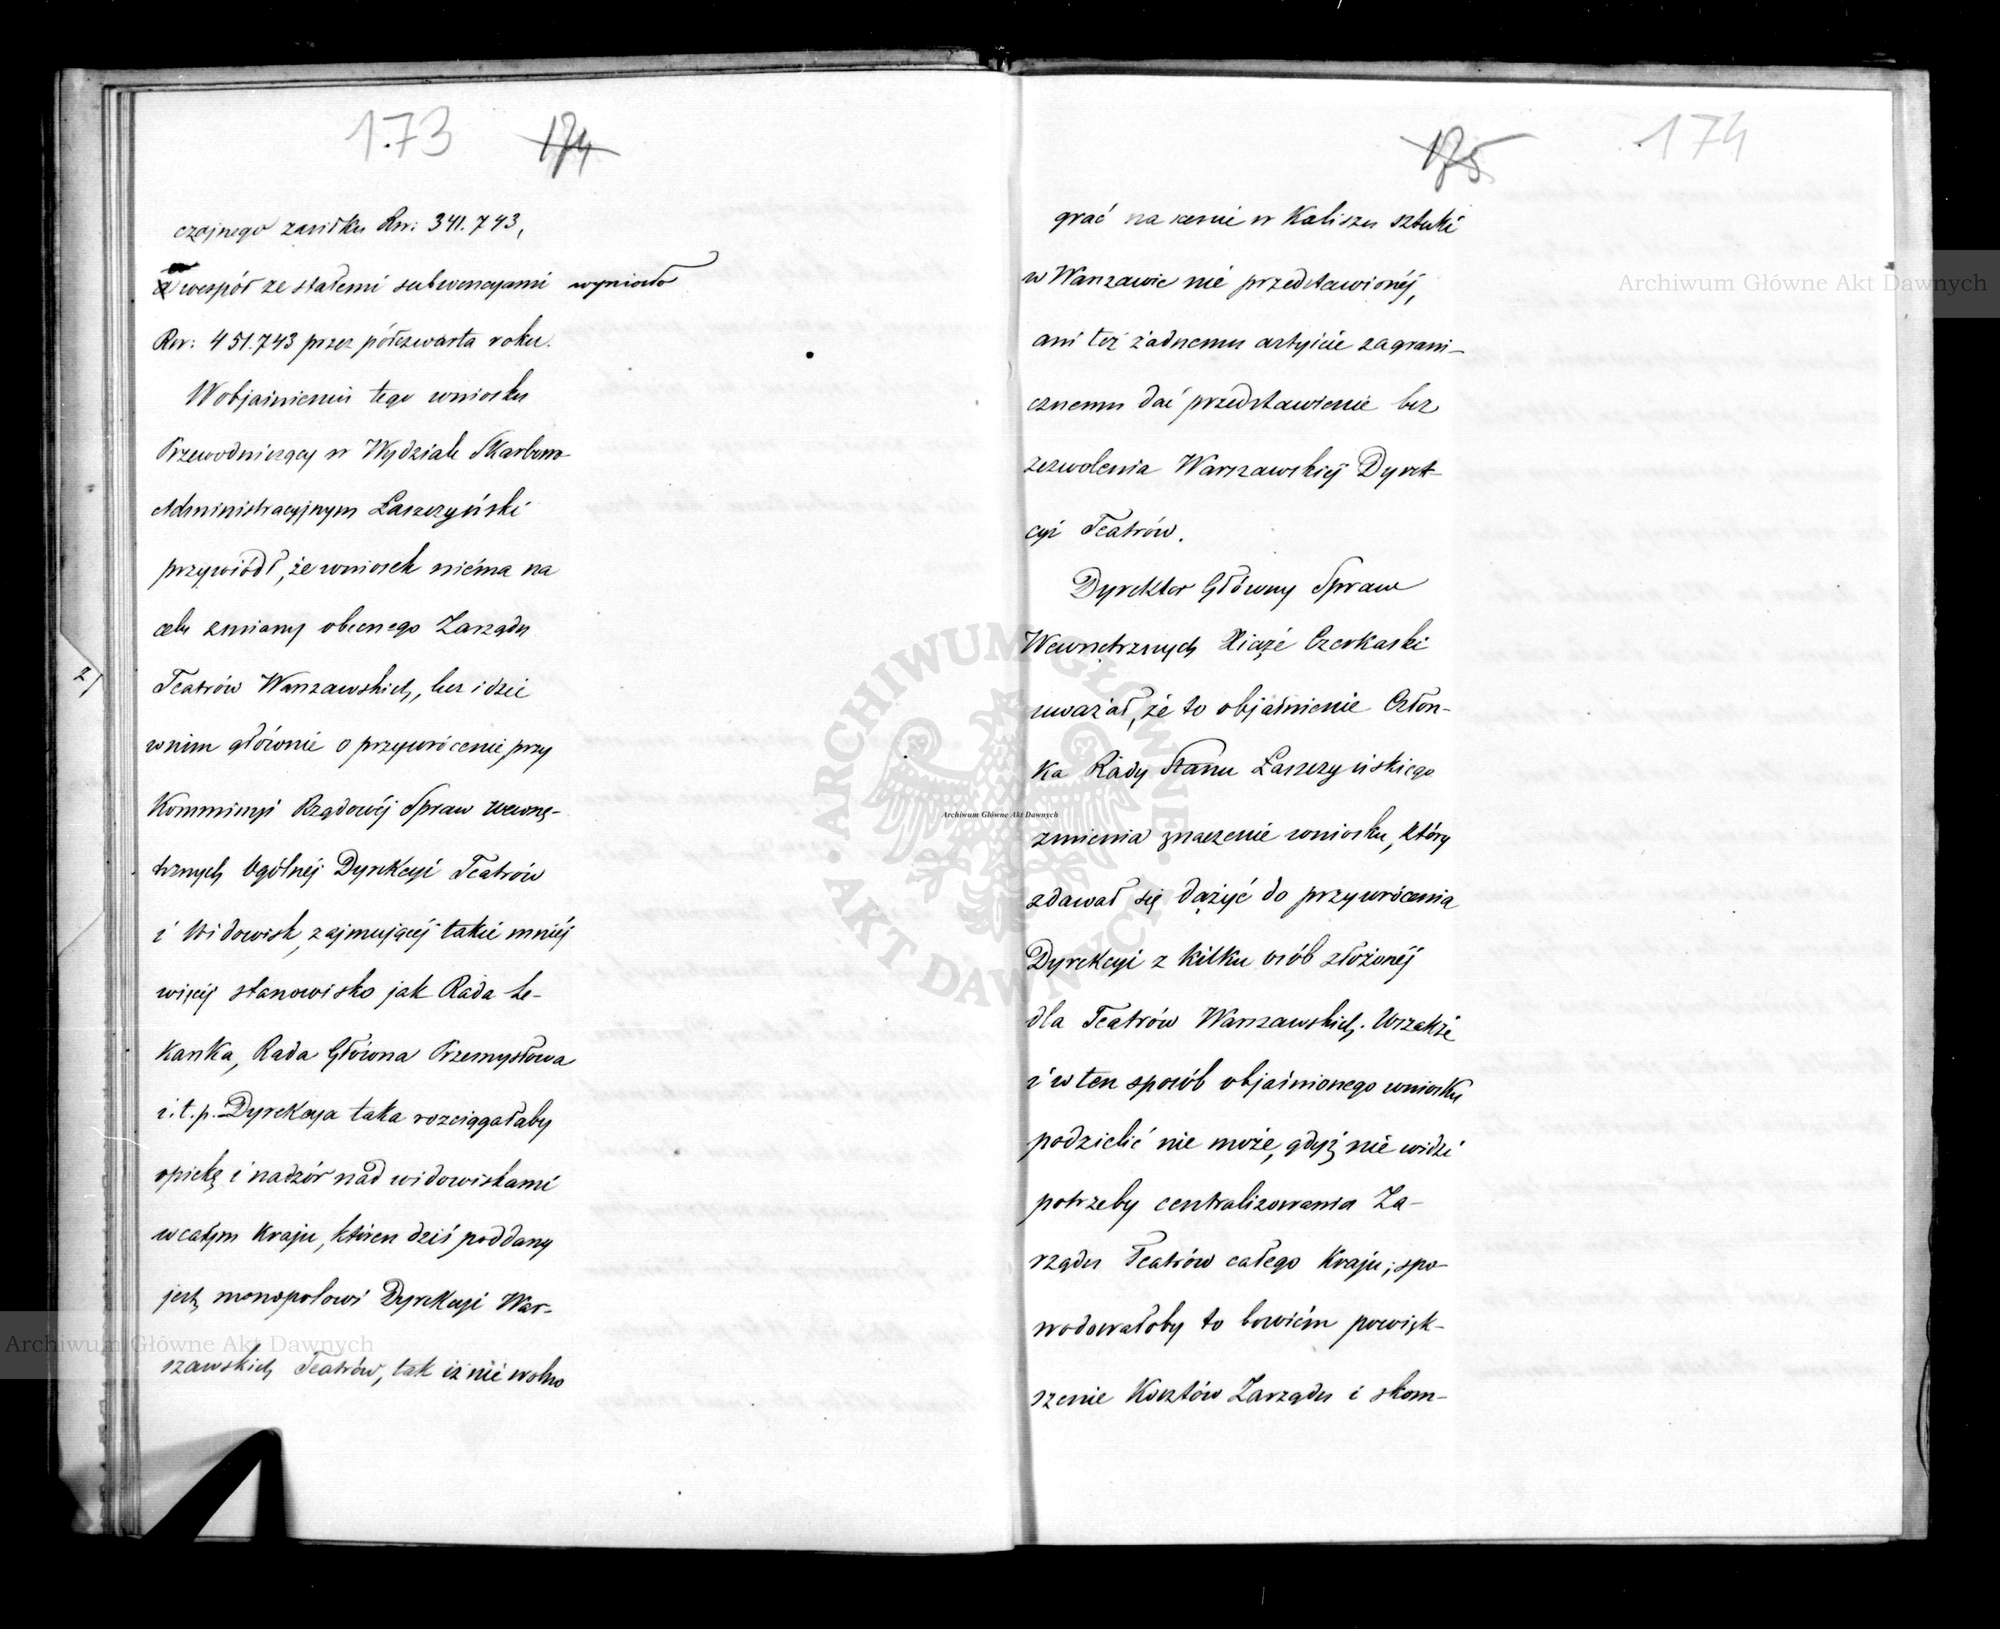 173 174
czajnego zasiłku Rsr: 341.743,
a wespół ze stałemi subwencyami wyniosło
Rsr: 451.743 przez półczwarta roku.
W objaśnieniu tego wniosku
Przewodniczący w Wydziale Skarbowo
Administracyjnym Łaszczyński
przywiódł, że wniosek niéma na
celu zmiany obecnego Zarządu
Teatrów Warszawskich, lecz idzie
w nim głównie o przywrócenie przy
Kommissyi Rządowéj Spraw Wewnę-
trznych Ogólnéj Dyrekcyi Teatrów
i Widowisk, zajmującéj takie mniéj
więcéj stanowisko jak Rada Le-
karska, Rada Główna Przemysłowa
i.t.p. Dyrekcya taka rozciągałaby
opiekę i nadzór nad widowiskami
w całym Kraju, któren dziś poddany
jest monopolowi Dyrekcyi War-
szawskich Teatrów, tak iż nie wolno
2)
175 174
grać na scenie w Kaliszu sztuki
w Warszawie nie przedstawionéj,
ani też żadnemu artyście zagrani-
cznemu dać przedstawienie bez
zezwolenia Warszawskiéj Dyrek-
cyi Teatrów.
Dyrektor Główny Spraw
Wewnętrznych Xiążę Czerkaski
uważał, że to objaśnienie Człon-
ka Rady Stanu Łaszczyńskiego
zmienia znaczenie wniosku, który
zdawał się dążyć do przywrócenia
Dyrekcyi z kilku osób złożonéj
dla Teatrów Warszawskich. Wszakże
i w ten sposób objaśnionego wniosku
podzielić nie może, gdyż nie widzi
potrzeby centralizowania Za-
rządu Teatrów całego Kraju; spo-
wodowałoby to bowiém powięk-
szenie Kosztów Zarządu i skom-
Archiwum Główne Akt Dawnych
ARCHIWUM GŁÓWNE AKT DAWNYCH
Archiwum Główne Akt Dawnych
Archiwum Główne Akt Dawnych